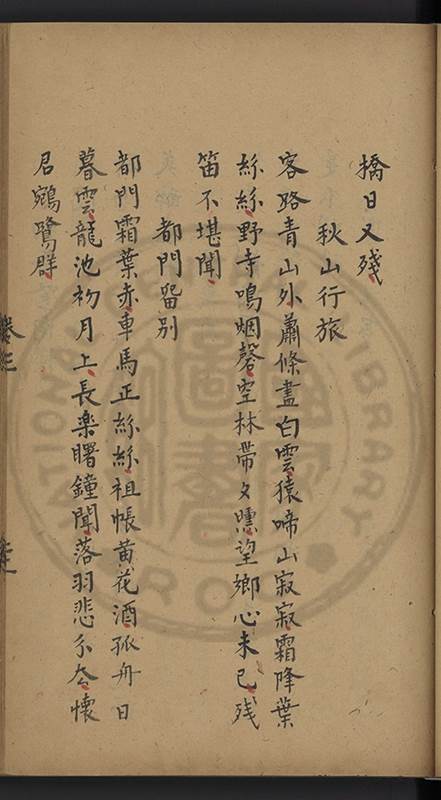 橋日又殘
秋山行旅
客路青山外蕭條盡白雲猿啼山寂寂霜降葉
絲絲野寺鳴烟磬空林帶夕曛望鄉心未已殘
笛不堪聞
都門留別
都門霜葉赤車馬正絲絲祖帳黄花酒孤舟日
暮雲龍池初月上長楽曙鐘聞落羽悲分
懷
君鵷鷺群